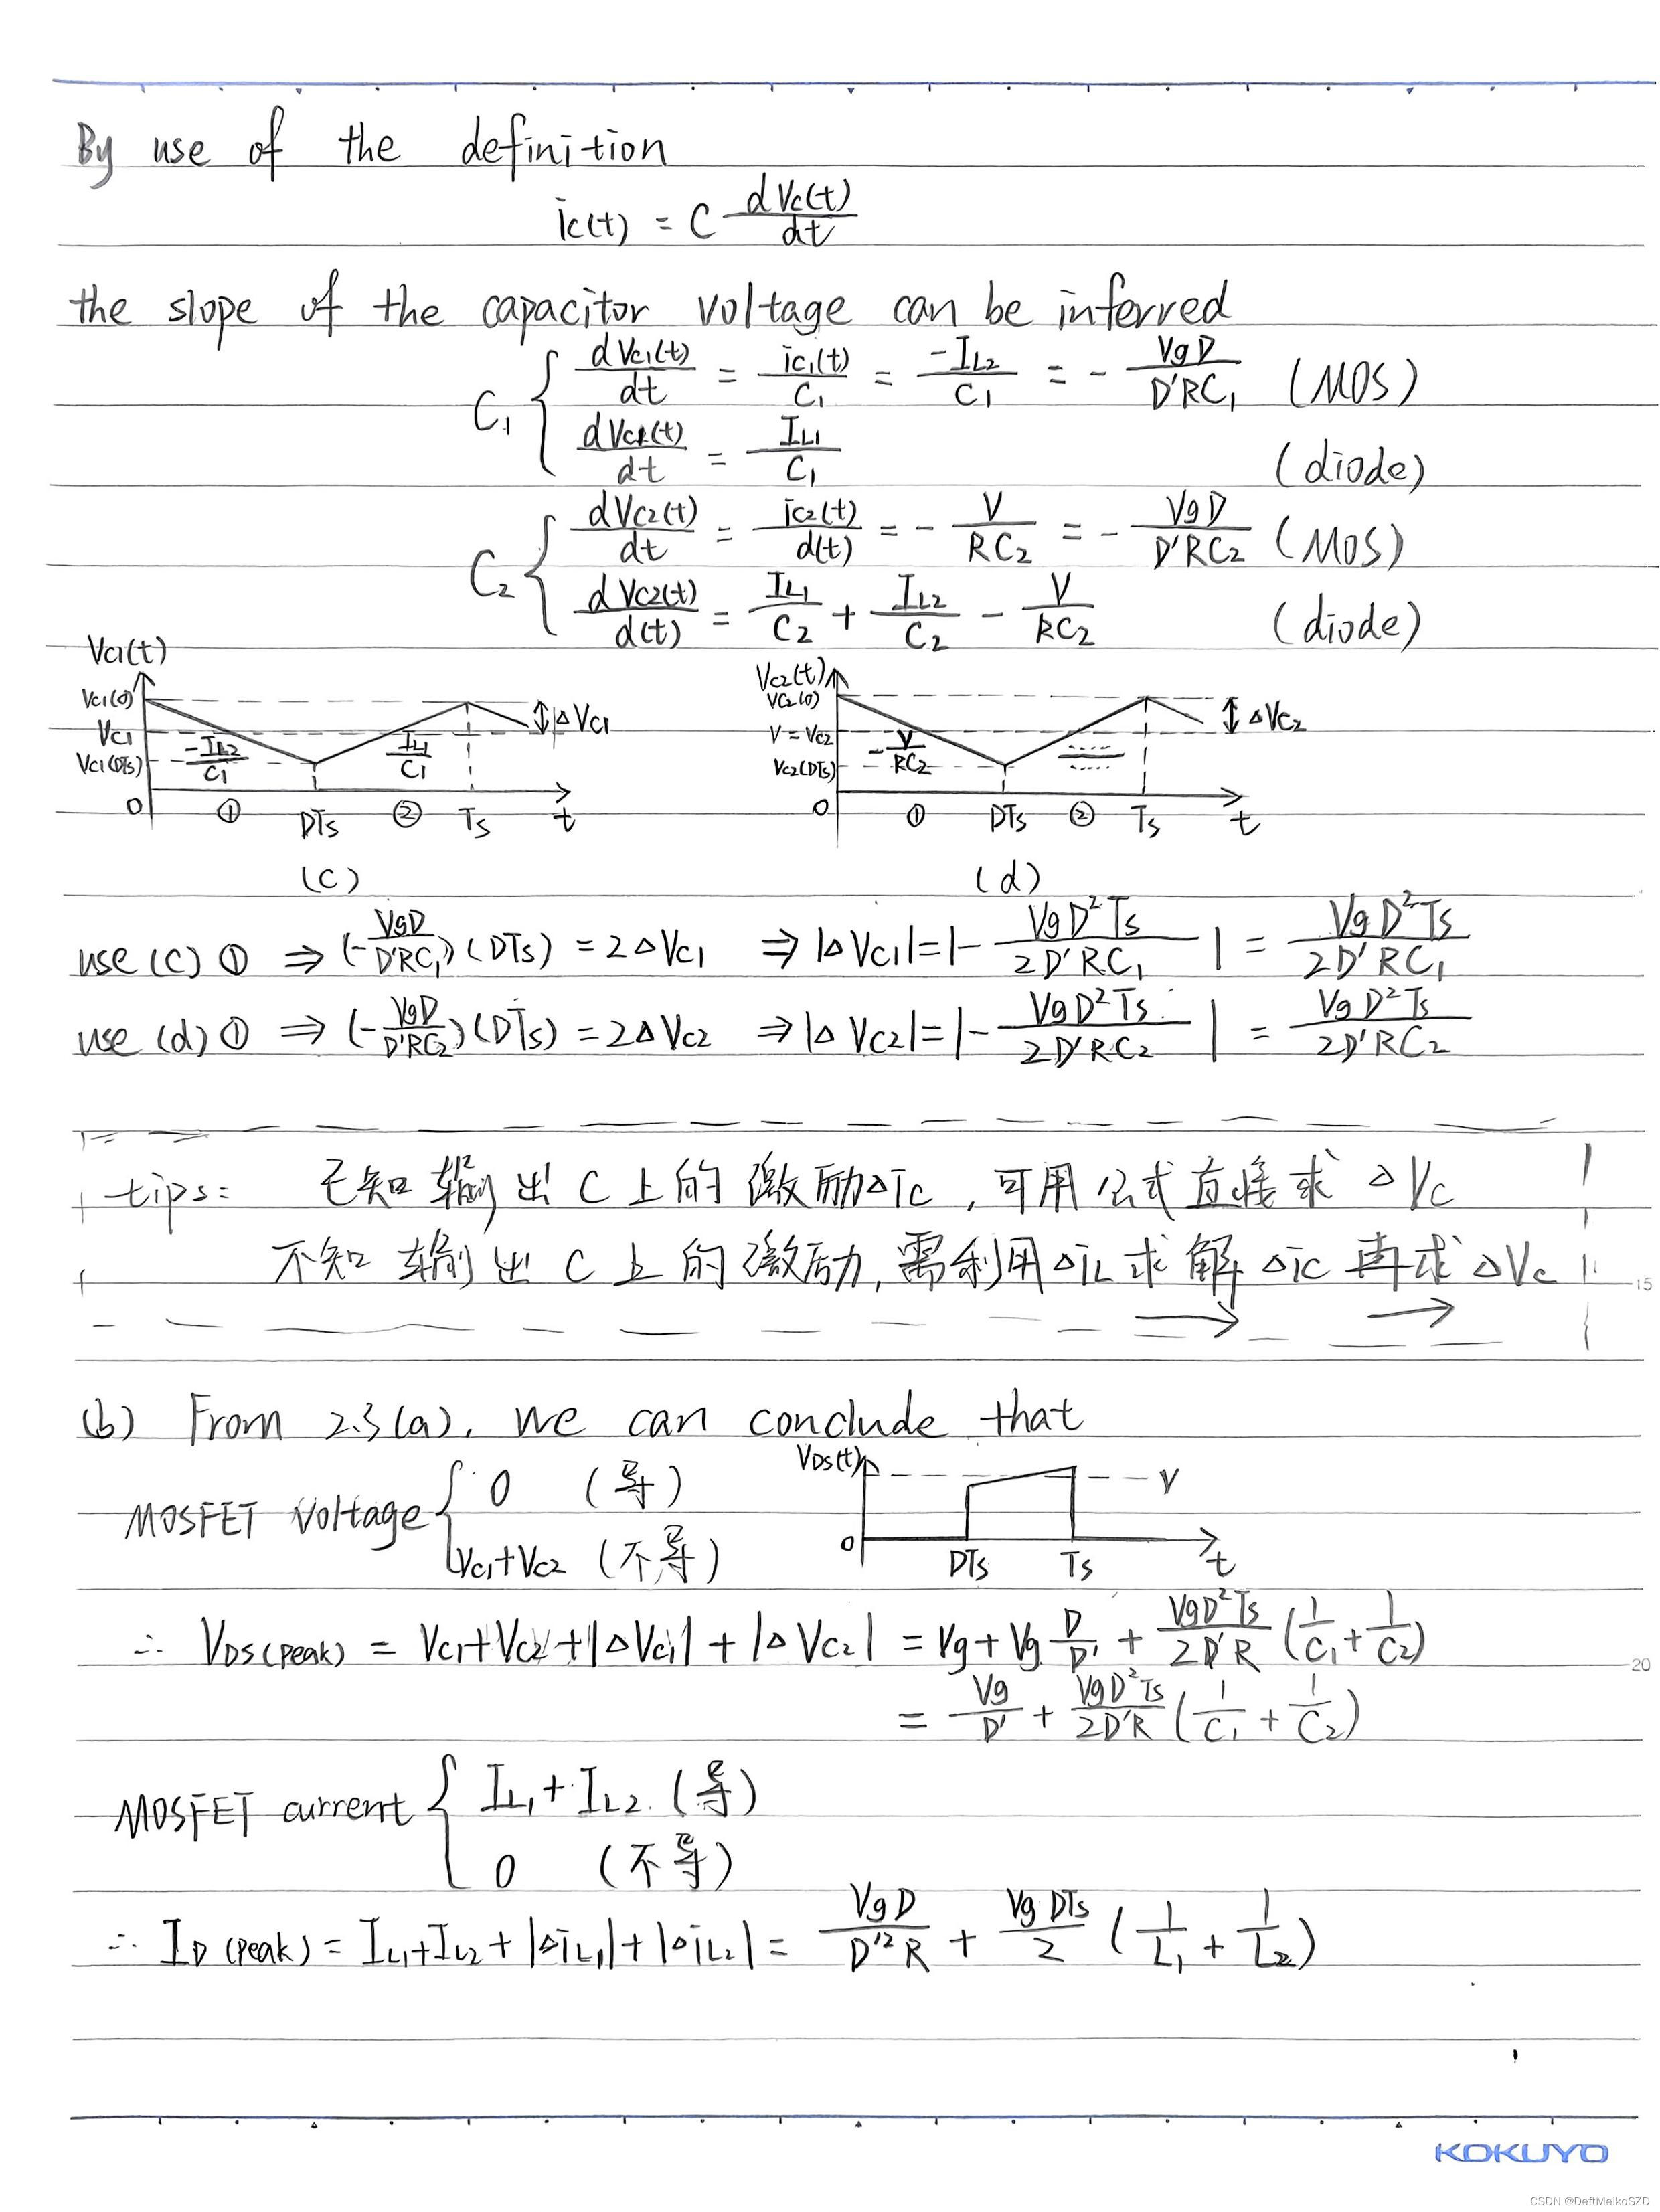 By use of the definition
ic(t) = C dVc(t)/dt
the slope of the capacitor voltage can be inferred
C₁ { dVc₁(t)/dt = ic₁(t)/C₁ = -IL₂/C₁ = - VgD/D'RC₁ (MOS)
dVc₁(t)/dt = IL₁/C₁ (diode)
C₂ { dVc₂(t)/dt = ic₂(t)/d(t) = - V/RC₂ = - VgD/D'RC₂ (MOS)
dVc₂(t)/d(t) = IL₁/C₂ + IL₂/C₂ - V/RC₂ (diode)
Vc₁(t) Vc₂(t)
Vc₁(0) Vc₂(0)
ΔVc₁ ΔVc₂
Vc₁ V = Vc₂
-IL₂/C₁ IL₁/C₁ -V/RC₂
Vc₁(DTs) Vc₂(DTs)
0 ① DTs ② Ts t 0 ① DTs ② Ts t
(c) (d)
use (c) ① ⇒ (-VgD/D'RC₁)(DTs) = 2ΔVc₁ ⇒ |ΔVc₁| = |- VgD²Ts/2D'RC₁ | = VgD²Ts/2D'RC₁
use (d) ① ⇒ (-VgD/D'RC₂)(DTs) = 2ΔVc₂ ⇒ |ΔVc₂| = |- VgD²Ts/2D'RC₂ | = VgD²Ts/2D'RC₂
tips: 已知输出C上的激励Δic,可用公式直接求ΔVc
不知输出C上的激励,需利用ΔiL求解Δic再求ΔVc
15
(b) From 2.3(a), we can conclude that
VDS(t) V
MOSFET Voltage { 0 (导)
Vc₁+Vc₂ (不导)
0 DTs Ts t
∴ VDS(peak) = Vc₁+Vc₂+|ΔVc₁|+|ΔVc₂| = Vg+Vg D/D' + VgD²Ts/2D'R (1/C₁+1/C₂)
20
= Vg/D' + VgD²Ts/2D'R (1/C₁ + 1/C₂)
MOSFET current { IL₁+IL₂ (导)
0 (不导)
∴ ID(peak) = IL₁+IL₂+|ΔiL₁|+|ΔiL₂| = VgD/D'²R + VgDTs/2 (1/L₁ + 1/L₂)
KOKUYO
CSDN @DeftMeikoSZD